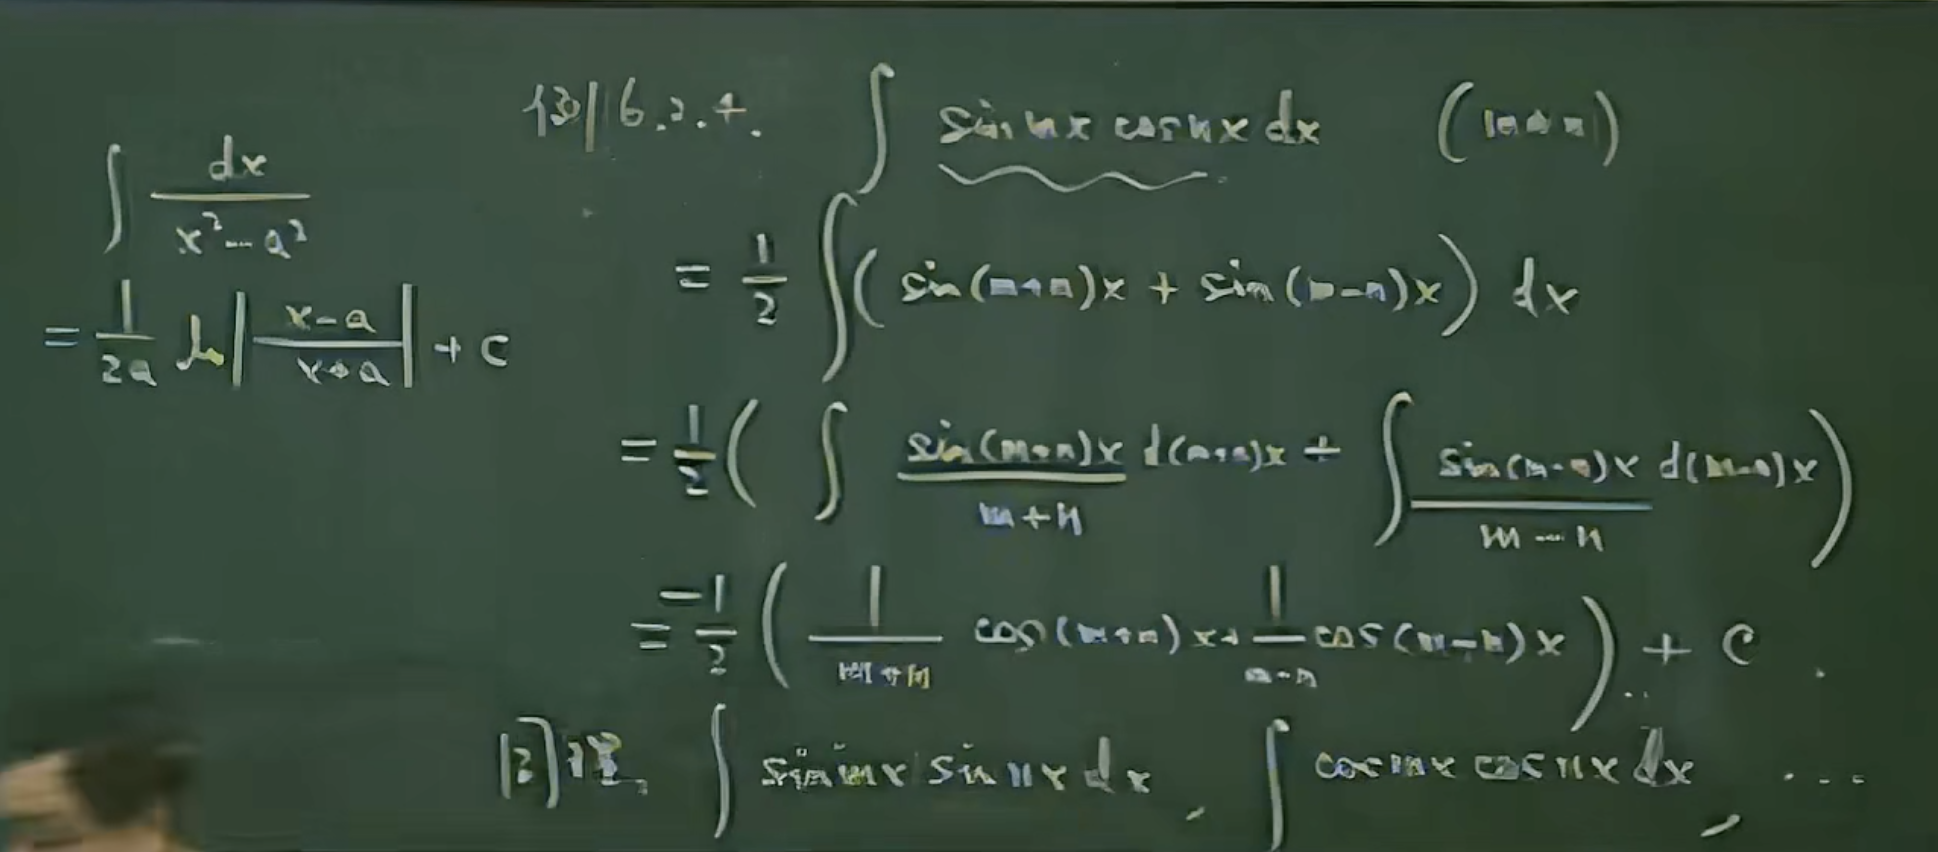 ∫ dx / (x² - a²)
= 1/(2a) ln |(x-a)/(x+a)| + C
例 6.2.4. ∫ sin mx cos nx dx (m≠n)
= 1/2 ∫ ( sin(m+n)x + sin(m-n)x ) dx
= 1/2 ( ∫ sin(m+n)x / (m+n) d(m+n)x + ∫ sin(m-n)x / (m-n) d(m-n)x )
= -1/2 ( 1/(m+n) cos(m+n)x + 1/(m-n) cos(m-n)x ) + C.
同理, ∫ sin mx sin nx dx, ∫ cos mx cos nx dx, ....